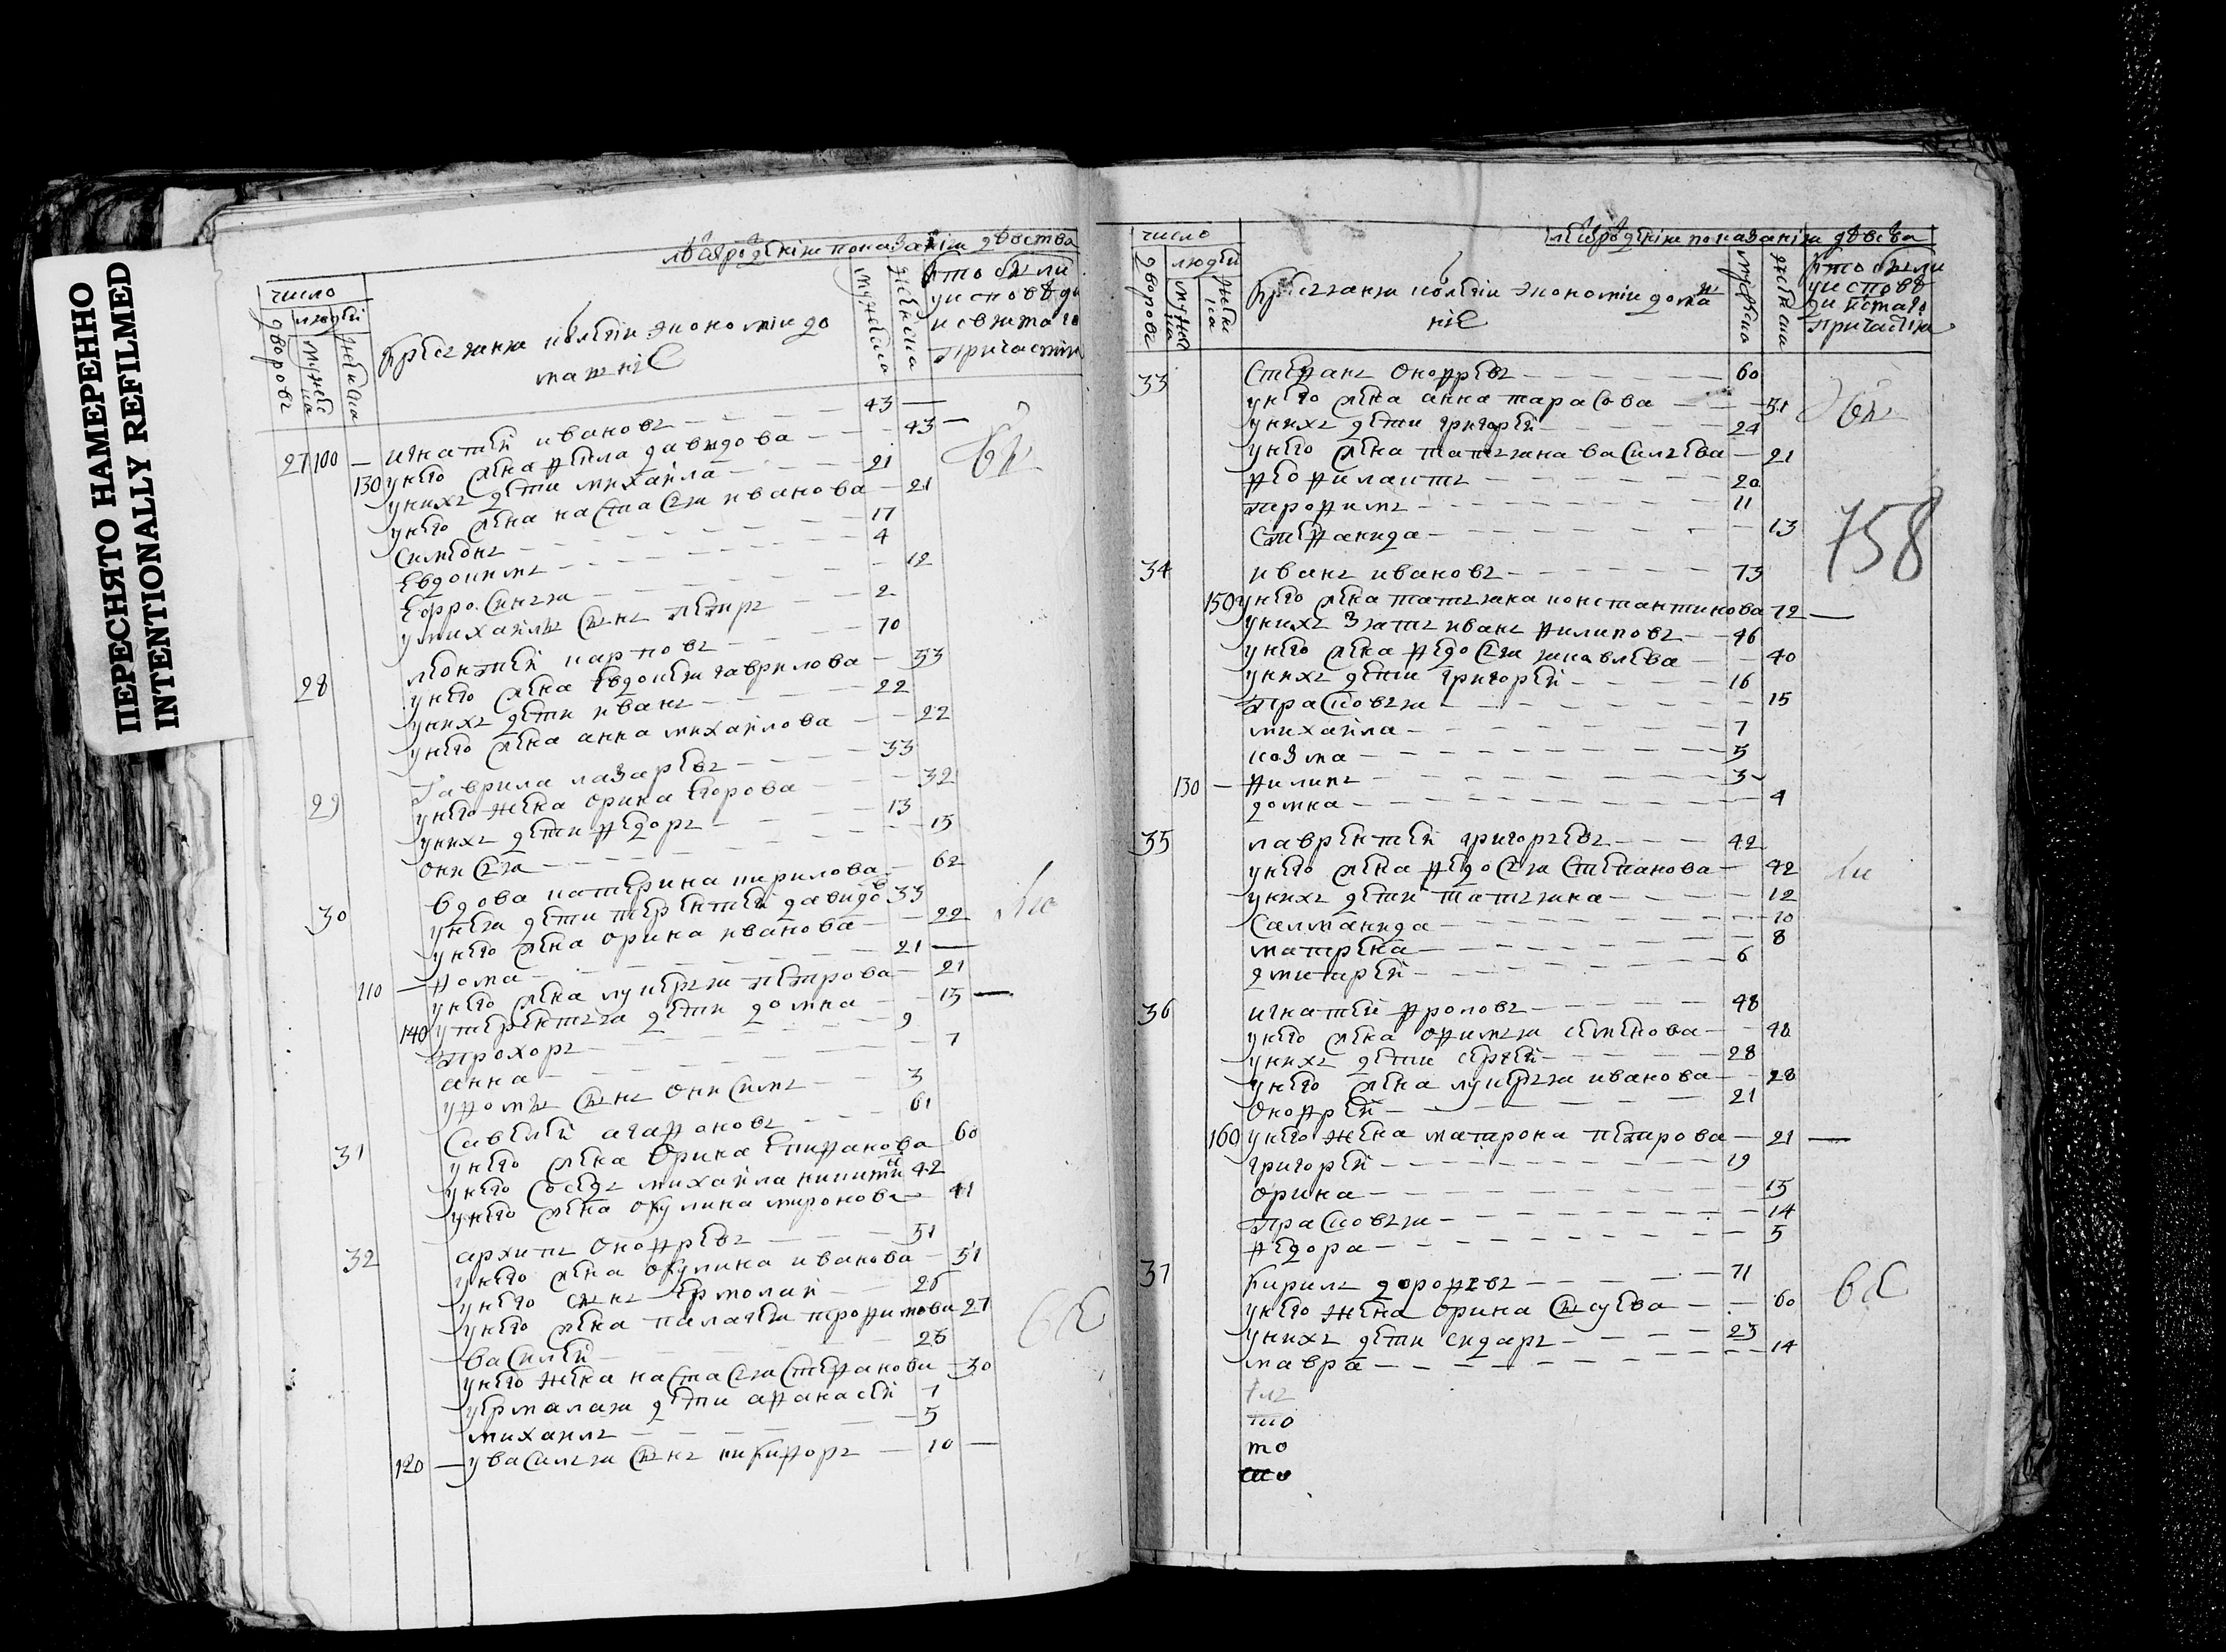 ПЕРЕСНЯТО НАМЕРЕННО
INTENTIONALLY REFILMED
число
дворовъ
людей
мужеска
женска
крестьяня колегіи экономіи до
машніе
лѣта от рожденія показанія дѣвства
мужеска
женска
кто были
у исповѣди
и святаго
причастія
27 100 — игнатей ивановъ — 43 —
130 у него жена фекла давидова — 43 —
у нихъ дети михайла — 21
у него жена настасья иванова — 21
симеонъ — 17
евдокимъ — 4
ефросинья — 12
у михайлы сынъ петръ — 2
28 леонтей карповъ — 70
у него жена евдокія гаврилова — 53
у нихъ дети иванъ — 22
у него жена анна михайлова — 22
29 гаврила лазаревъ — 33
у него жена орина егорова — 32
у нихъ дети федоръ — 13
онисья — 15
30 вдова катерина кирилова — 62
у нея дети терентей давидовъ 33
у него жена орина иванова — 22
110 — фома — 21 —
у него жена лукерья петрова — 21
140 у терентья дети домна — 15 —
прохоръ — 9
анна — 7
у фомы сынъ онисимъ — 3
31 савелей агафоновъ — 61
у него жена орина епифанова 60
у него соседъ михайла никитинъ 42
у него жена окулина миронова — 41
32 архипъ онофревъ — 51
у него жена окулина иванова — 51
у него сынъ ермолай — 26
у него жена палагея трофимова 27
василей — 26
у него жена настасья стефанова — 30
у ермалая дети афанасей 7
михаилъ — 5
120 — у василья сынъ никифоръ — 10 —
число
дворовъ
людей
мужеска
женска
крестьяня колегіи экономіи дома
шніе
лѣта от рожденія показанія дѣвства
мужеска
женска
кто были
у исповѣ
ди и стаго
причастія
33 стефанъ онофревъ — 60
у него жена анна тарасова — 51
у нихъ дети григорей — 24
у него жена татьяна васильева — 21
феофилактъ — 20
трофимъ — 11
стефанида — 13
758
34 иванъ ивановъ — 73
150 у него жена татьяна константинова 72 —
у нихъ зять иванъ филиповъ — 46
у него жена федосья яковлева — 40
у нихъ дети григорей — 16
прасковья — 15
михайла — 7
козма — 5
130 — филипъ — 3
домна — 4
35 лаврентей григорьевъ — 42
у него жена федосья степанова — 42
у нихъ дети татьяна — 12
салманида — 10
матрена — 8
дмитрей — 6
36 игнатей фроловъ — 48
у него жена офимья семенова — 48
у нихъ дети сергей — 28
у него жена лукерья иванова — 28
онофрей — 21
160 у него жена матрона петрова — 21 —
григорей — 19
орина — 15
прасковья — 14
федора — 5
37 кирилъ дорофевъ — 71
у него жена орина сысуева — 60
у нихъ дети сидаръ — 23
мавра — 14
то
то